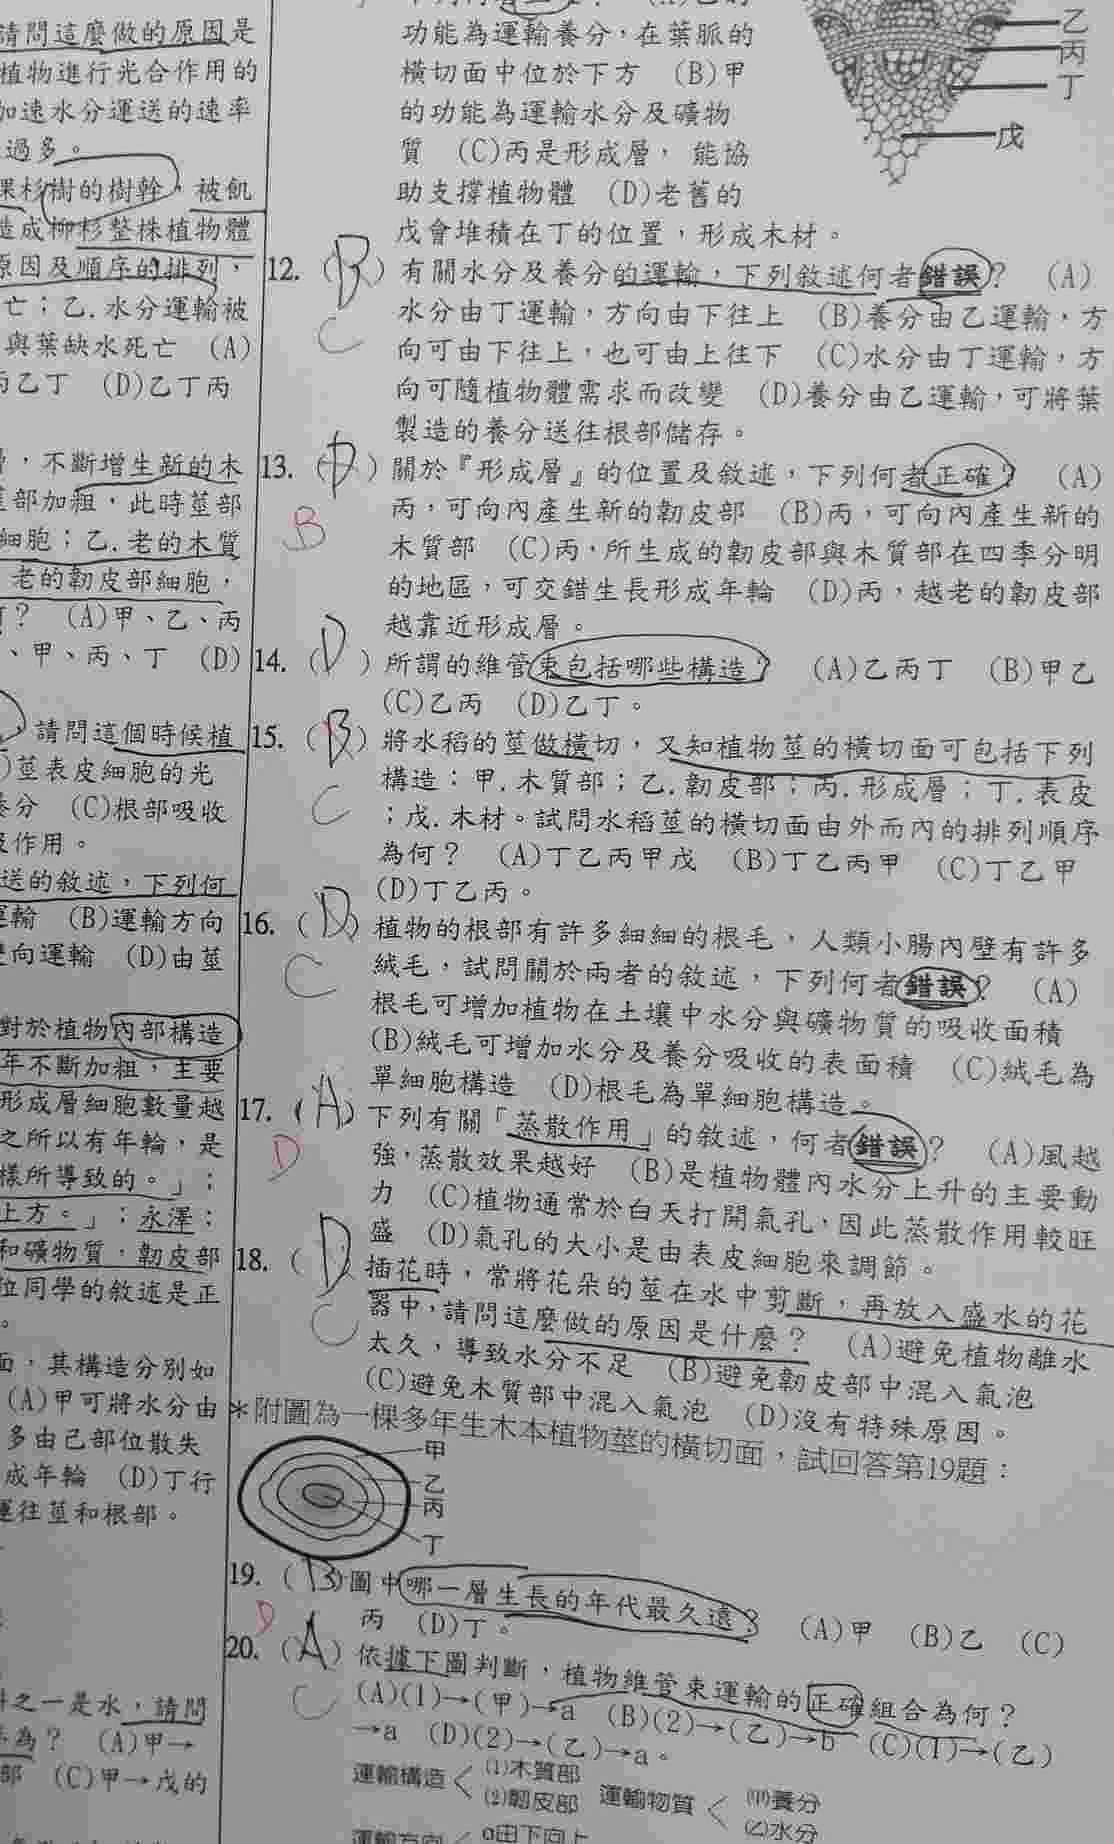 請問這麼做的原因是
植物進行光合作用的
加速水分運送的速率
過多。
棵杉樹的樹幹,被飢
造成柳杉整株植物體
原因及順序的排列,
亡;乙.水分運輸被
與葉缺水死亡 (A)
丙乙丁 (D)乙丁丙
,不斷增生新的木
莖部加粗,此時莖部
細胞;乙.老的木質
老的韌皮部細胞,
? (A)甲、乙、丙
、甲、丙、丁 (D)
,請問這個時候植
)莖表皮細胞的光
養分 (C)根部吸收
及作用。
送的敘述,下列何
運輸 (B)運輸方向
雙向運輸 (D)由莖
對於植物內部構造
年不斷加粗,主要
形成層細胞數量越
之所以有年輪,是
樣所導致的。」;
上方。」;永澤:
和礦物質,韌皮部
位同學的敘述是正
。
面,其構造分別如
(A)甲可將水分由
多由己部位散失
成年輪 (D)丁行
運往莖和根部。
料之一是水,請問
為? (A)甲→
部 (C)甲→戊的
功能為運輸養分,在葉脈的
橫切面中位於下方 (B)甲
的功能為運輸水分及礦物
質 (C)丙是形成層, 能協
助支撐植物體 (D)老舊的
戊會堆積在丁的位置,形成木材。
乙
丙
丁
戊
12. (B) 有關水分及養分的運輸,下列敘述何者錯誤? (A)
C
水分由丁運輸,方向由下往上 (B)養分由乙運輸,方
向可由下往上,也可由上往下 (C)水分由丁運輸,方
向可隨植物體需求而改變 (D)養分由乙運輸,可將葉
製造的養分送往根部儲存。
13. (D) 關於『形成層』的位置及敘述,下列何者正確? (A)
B
丙,可向內產生新的韌皮部 (B)丙,可向內產生新的
木質部 (C)丙,所生成的韌皮部與木質部在四季分明
的地區,可交錯生長形成年輪 (D)丙,越老的韌皮部
越靠近形成層。
14. (D) 所謂的維管束包括哪些構造? (A)乙丙丁 (B)甲乙
(C)乙丙 (D)乙丁。
15. (B) 將水稻的莖做橫切,又知植物莖的橫切面可包括下列
C
構造:甲.木質部;乙.韌皮部;丙.形成層;丁.表皮
;戊.木材。試問水稻莖的橫切面由外而內的排列順序
為何? (A)丁乙丙甲戊 (B)丁乙丙甲 (C)丁乙甲
(D)丁乙丙。
16. (D) 植物的根部有許多細細的根毛,人類小腸內壁有許多
C
絨毛,試問關於兩者的敘述,下列何者錯誤? (A)
根毛可增加植物在土壤中水分與礦物質的吸收面積
(B)絨毛可增加水分及養分吸收的表面積 (C)絨毛為
單細胞構造 (D)根毛為單細胞構造。
17. (A) 下列有關「蒸散作用」的敘述,何者錯誤? (A)風越
D
強,蒸散效果越好 (B)是植物體內水分上升的主要動
力 (C)植物通常於白天打開氣孔,因此蒸散作用較旺
盛 (D)氣孔的大小是由表皮細胞來調節。
18. (D) 插花時,常將花朵的莖在水中剪斷,再放入盛水的花
C
器中,請問這麼做的原因是什麼? (A)避免植物離水
太久,導致水分不足 (B)避免韌皮部中混入氣泡
(C)避免木質部中混入氣泡 (D)沒有特殊原因。
*附圖為一棵多年生木本植物莖的橫切面,試回答第19題:
甲
乙
丙
丁
19. (B) 圖中哪一層生長的年代最久遠? (A)甲 (B)乙 (C)
D
丙 (D)丁。
20. (A) 依據下圖判斷,植物維管束運輸的正確組合為何?
C
(A)(1)→(甲)→a (B)(2)→(乙)→b (C)(1)→(乙)
→a (D)(2)→(乙)→a。
運輸構造 < (1)木質部
(2)韌皮部
運輸物質 < (甲)養分
(乙)水分
運輸方向 < a由下向上